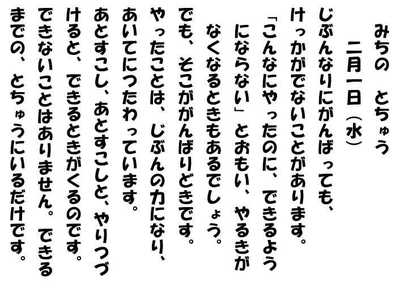 みちの　とちゅう
二月一日（水）
じぶんなりにがんばっても、
けっかがでないことがあります。
「こんなにやったのに、できるよう
にならない」とおもい、やるきが
なくなるときもあるでしょう。
でも、そこががんばりどきです。
やったことは、じぶんの力になり、
あいてにつたわっています。
あとすこし、あとすこしと、やりつづ
けると、できるときがくるのです。
できないことはありません。できる
までの、とちゅうにいるだけです。